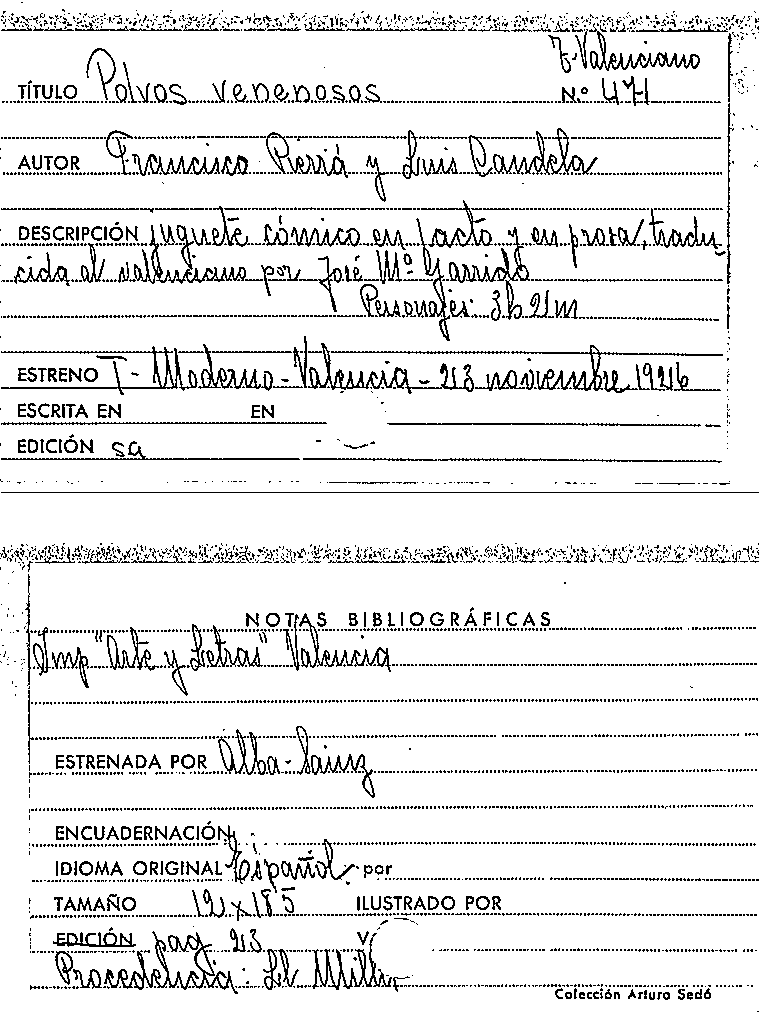 T-Valenciano
TÍTULO Polvos venenosos N.º 471
AUTOR Francisco Pierrá y Luis Candela
DESCRIPCIÓN juguete cómico en 1 acto y en prosa, tradu-
cida al valenciano por José Mª Garrido
Personajes: 3h 2m
ESTRENO T- Moderno - Valencia - 23 noviembre 1926
ESCRITA EN EN
EDICIÓN sa
NOTAS BIBLIOGRÁFICAS
Imp "Arte y Letras" Valencia
ESTRENADA POR Alba-Sainz
ENCUADERNACIÓN
IDIOMA ORIGINAL Español por
TAMAÑO 12 x 18'5 ILUSTRADO POR
EDICIÓN pag 23 V
Procedencia: El
Colección Arturo Sedó